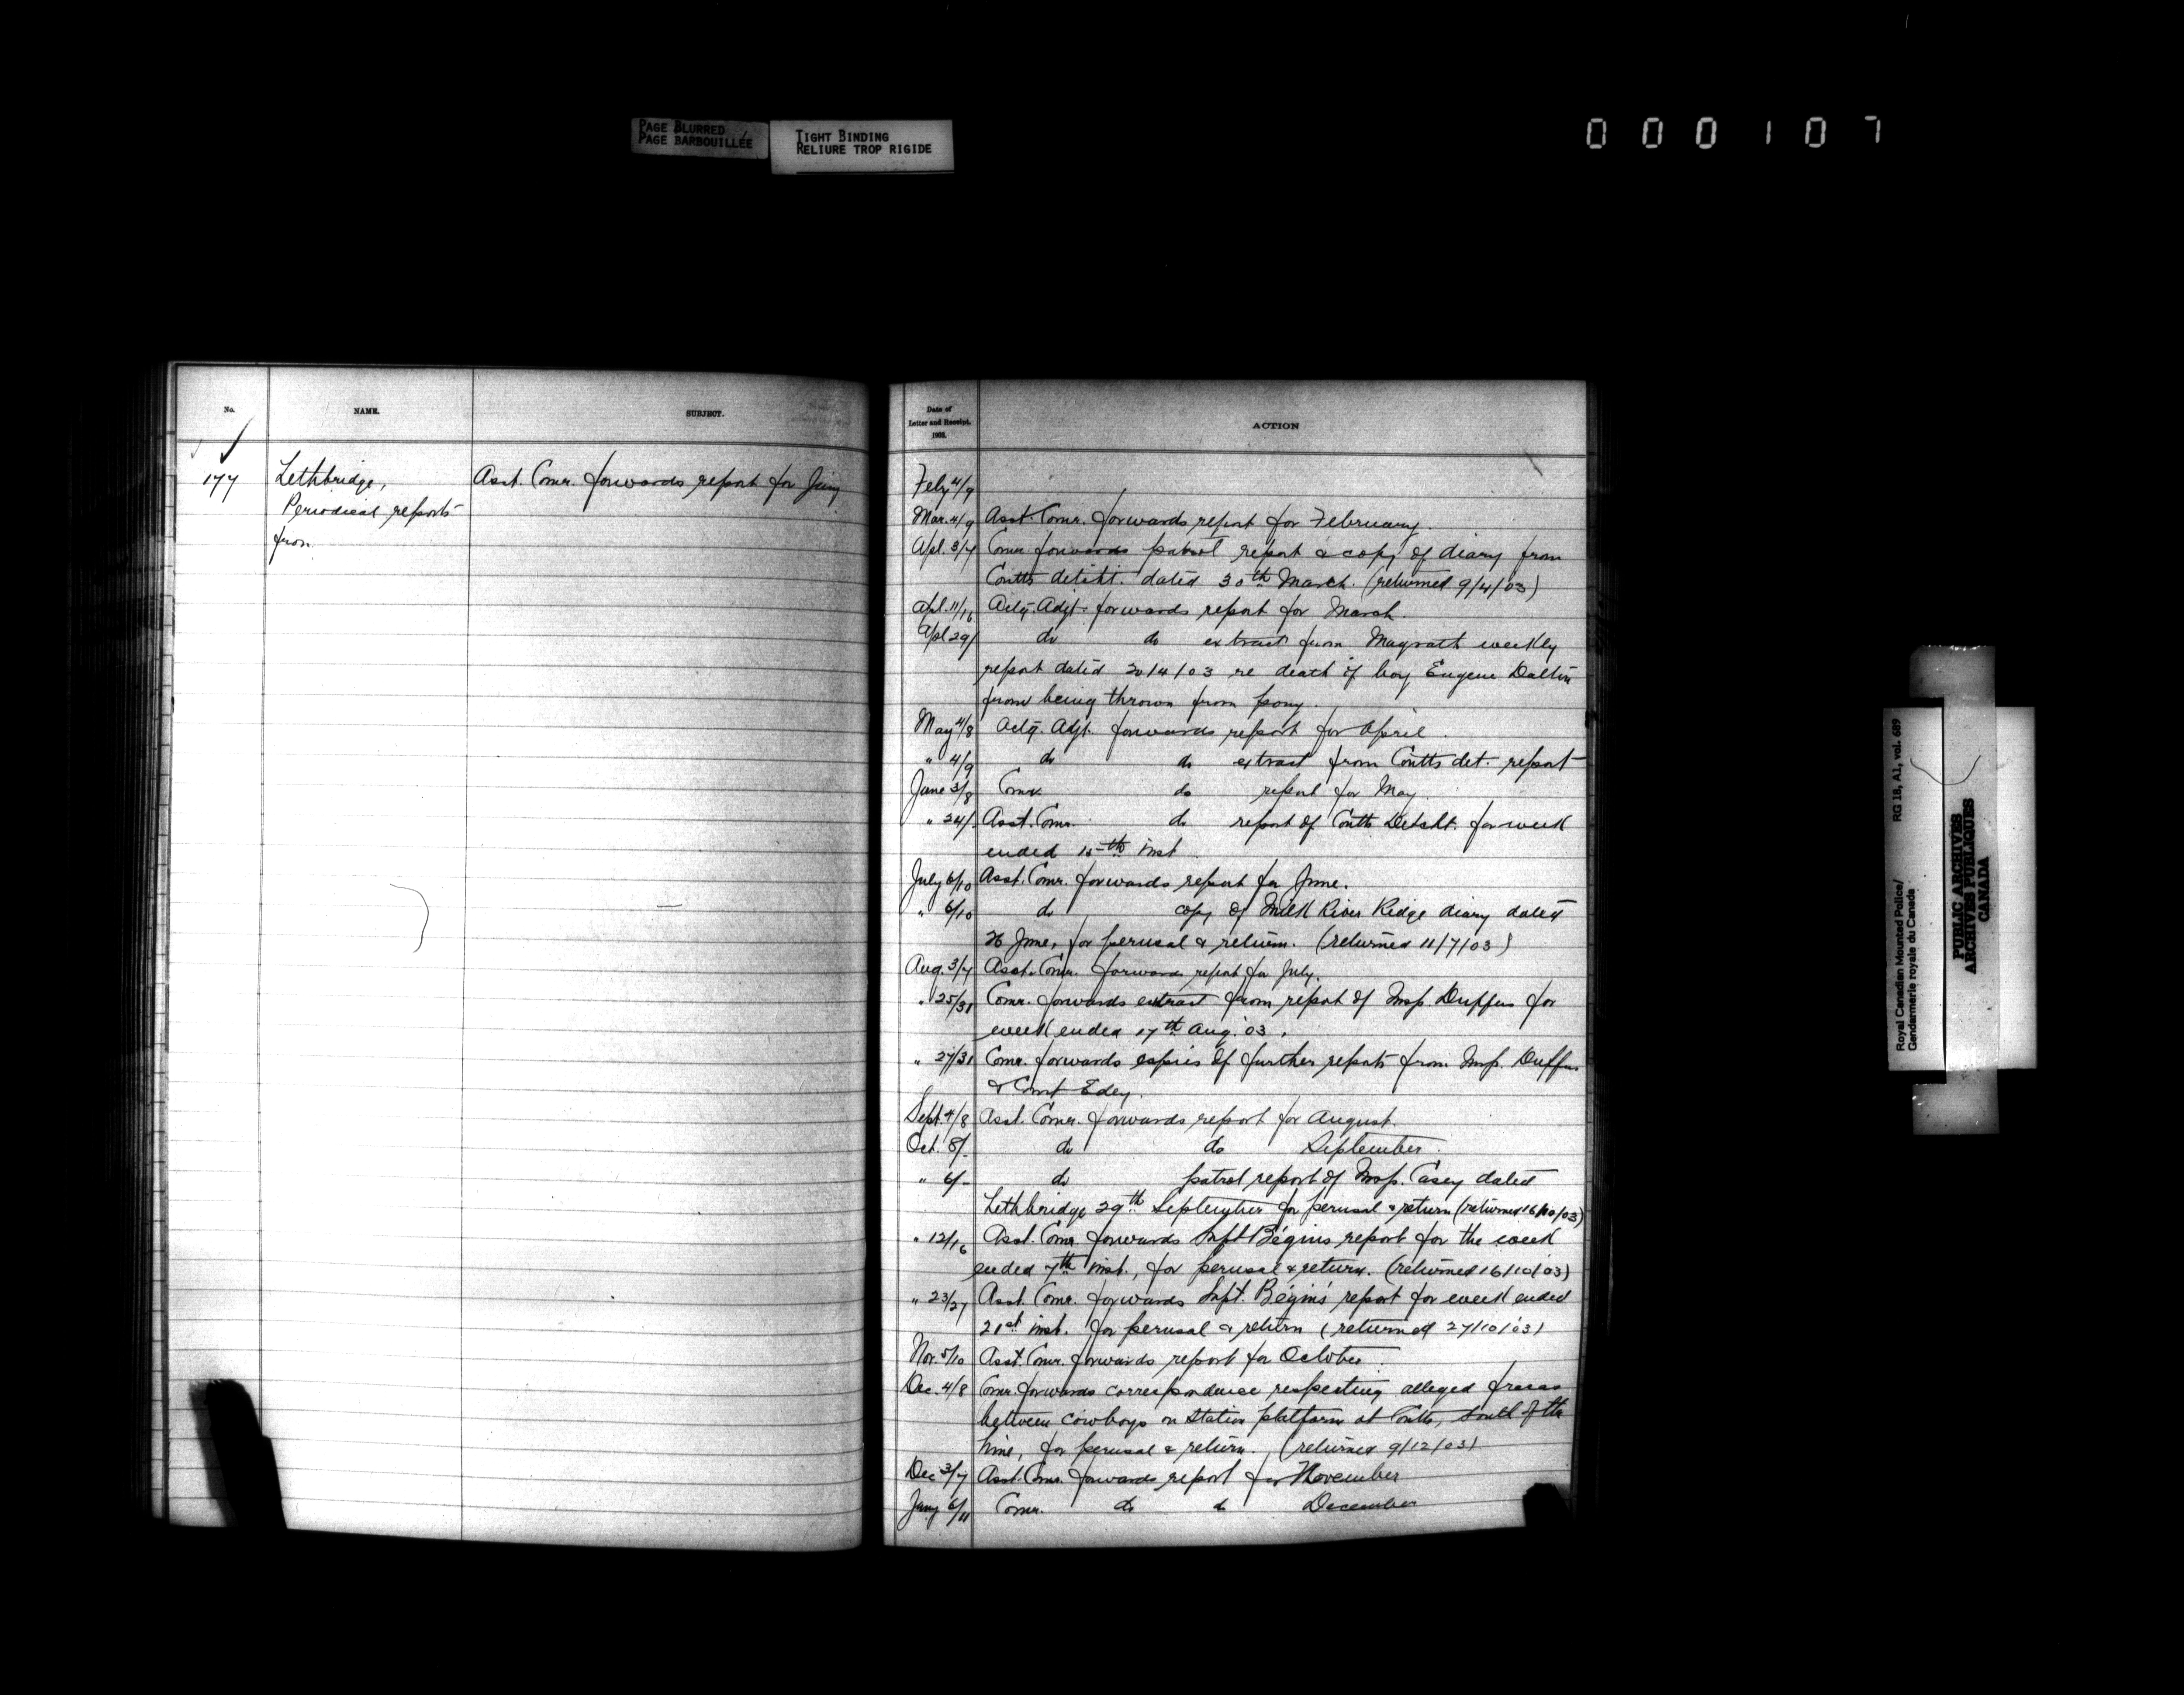 PAGE BLURRED
PAGE BARBOUILLÉE
TIGHT BINDING
RELIURE TROP RIGIDE
000107
No.
NAME.
SUBJECT.
177
Lethbridge,
Periodical reports
from
Asst. Comr. forwards report for Jany
Date of
Letter and Receipt.
1903.
ACTION
Feby 4/9
Mar. 4/9 Asst. Comr. forwards report for February.
Apl. 3/7 Comr. forwards patrol report & copy of diary from
Coutts detcht. dated 30th March. (returned 9/4/03)
Apl. 11/16 Actg. Adjt. forwards report for March.
Apl 29/ do do extract from Magrath weekly
report dated 20/4/03 re death of boy Eugene Dalton
from being thrown from pony.
May 4/8 Actg. Adjt. forwards report for April.
" 4/9 do do extract from Coutts det. report
June 3/8 Comr. do report for May.
" 24/ Asst. Comr. do report of Coutts Detcht. for week
ended 15th inst
July 6/10 Asst. Comr. forwards report for June.
" 6/10 do copy of Milk River Ridge diary dated
26 June, for perusal & return. (returned 11/7/03)
Aug. 3/7 Asst. Comr. forwards report for July.
" 25/31 Comr. forwards extract from report of Insp. Duffus for
week ended 17th Aug. '03.
" 27/31 Comr. forwards copies of further reports from Insp. Duffus
& Const Edey.
Sept. 4/8 Asst. Comr. forwards report for August.
Oct. 8/- do do September.
" 6/- do patrol report of Insp. Casey dated
Lethbridge 29th September for perusal & return (returned 16/10/03)
" 12/16 Asst. Comr. forwards Supt Bégin's report for the week
ended 7th inst., for perusal & return. (returned 16/10/03)
" 23/27 Asst. Comr. forwards Supt. Bégin's report for week ended
21st inst. for perusal & return (returned 27/10/03)
Nov. 5/10 Asst. Comr. forwards report for October.
Dec. 4/8 Comr. forwards correspondence respecting alleged fracas
between cowboys on station platform at Coutts, South of the
line, for perusal & return. (returned 9/12/03)
Dec 3/7 Asst. Comr. forwards report for November
Jany 6/11 Comr. do do December
Royal Canadian Mounted Police/ RG 18, A1, vol. 689
Gendarmerie royale du Canada
PUBLIC ARCHIVES
ARCHIVES PUBLIQUES
CANADA